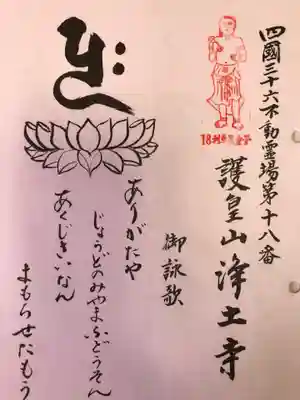 四國三十六不動霊場第十八番
護皇山浄土寺
18
御詠歌
ありがたや
じょうどのみやまふどうそん
あくじさいなん
まもらせたもう